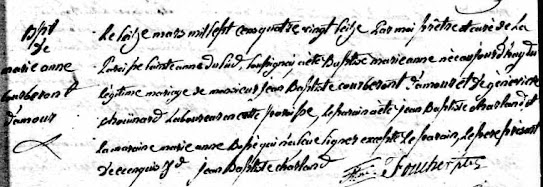 Bpt
de
marie anne
courberon t
d'amour
Le seize mars mil sept cens quatre vingt seize par moi prêtre et curé de La
Paroisse Sainte anne du Sud, soussigné, a été Baptisé marie anne née aujourd'huy du
légitime mariage de monsieur jean Baptiste courberont d'amour et de géneviève
chouinard Laboureur en cette paroisse, Le parain a été jean Baptiste charland et
La maraine marie anne Bopé qui n'a sçu signer excepté Le parain, Le pere présent
de ce enquis jean Baptiste charland
Foucher ptre